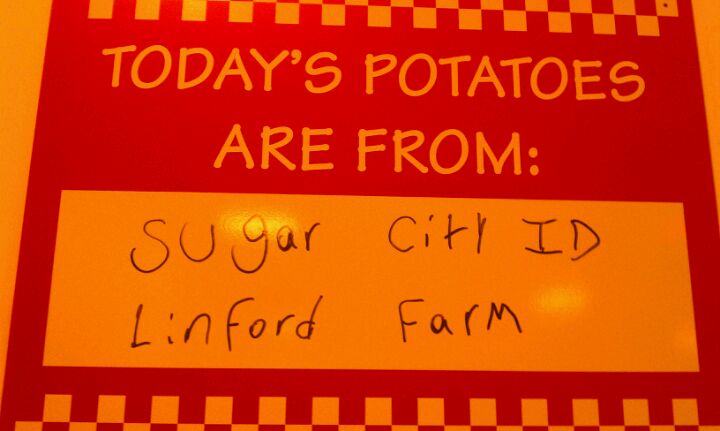 TODAY'S POTATOES
ARE FROM:
Sugar City ID
Linford Farm